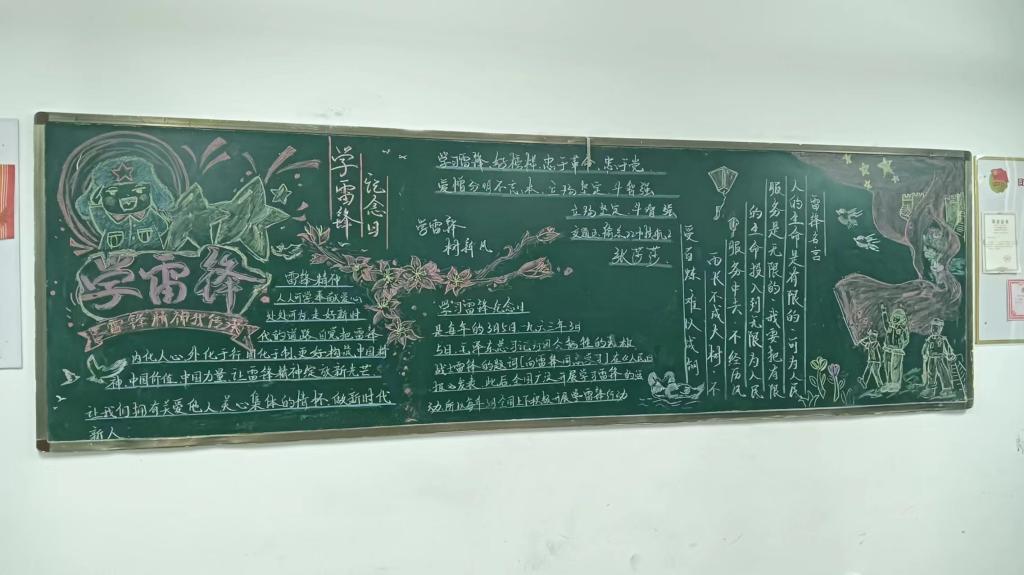 学雷锋
雷锋精神我传承
学雷锋
纪念日
雷锋精神
人人可学奉献爱心
处处可为是好新时
代的道路 自觉把雷锋
内化人心外化于行 固化于制 更好构筑中国精
神 中国价值 中国力量 让雷锋精神绽放新光芒
让我们拥有关爱他人 关心集体的情怀 做新时代
新人
学习雷锋好榜样 忠于革命 忠于党
爱憎分明不忘本 立场坚定斗智强
立场坚定 斗智强
学雷锋
树新风
张莎莎
学习雷锋纪念日
是每年的3月5日 一九六三年3月
5日 毛泽东
战士雷锋的题词《向雷锋同志学习》在《人民日
报》发表 此后全国广泛开展学习雷锋的活
动 所以每年3月全国上下积极开展学雷锋行动
雷锋名言
人的生命是有限的 可为人民
服务是无限的 我要把有限
的生命投入到无限为人民
服务中去 不经历风
雨 长不成大树 不
受百炼 难以成钢